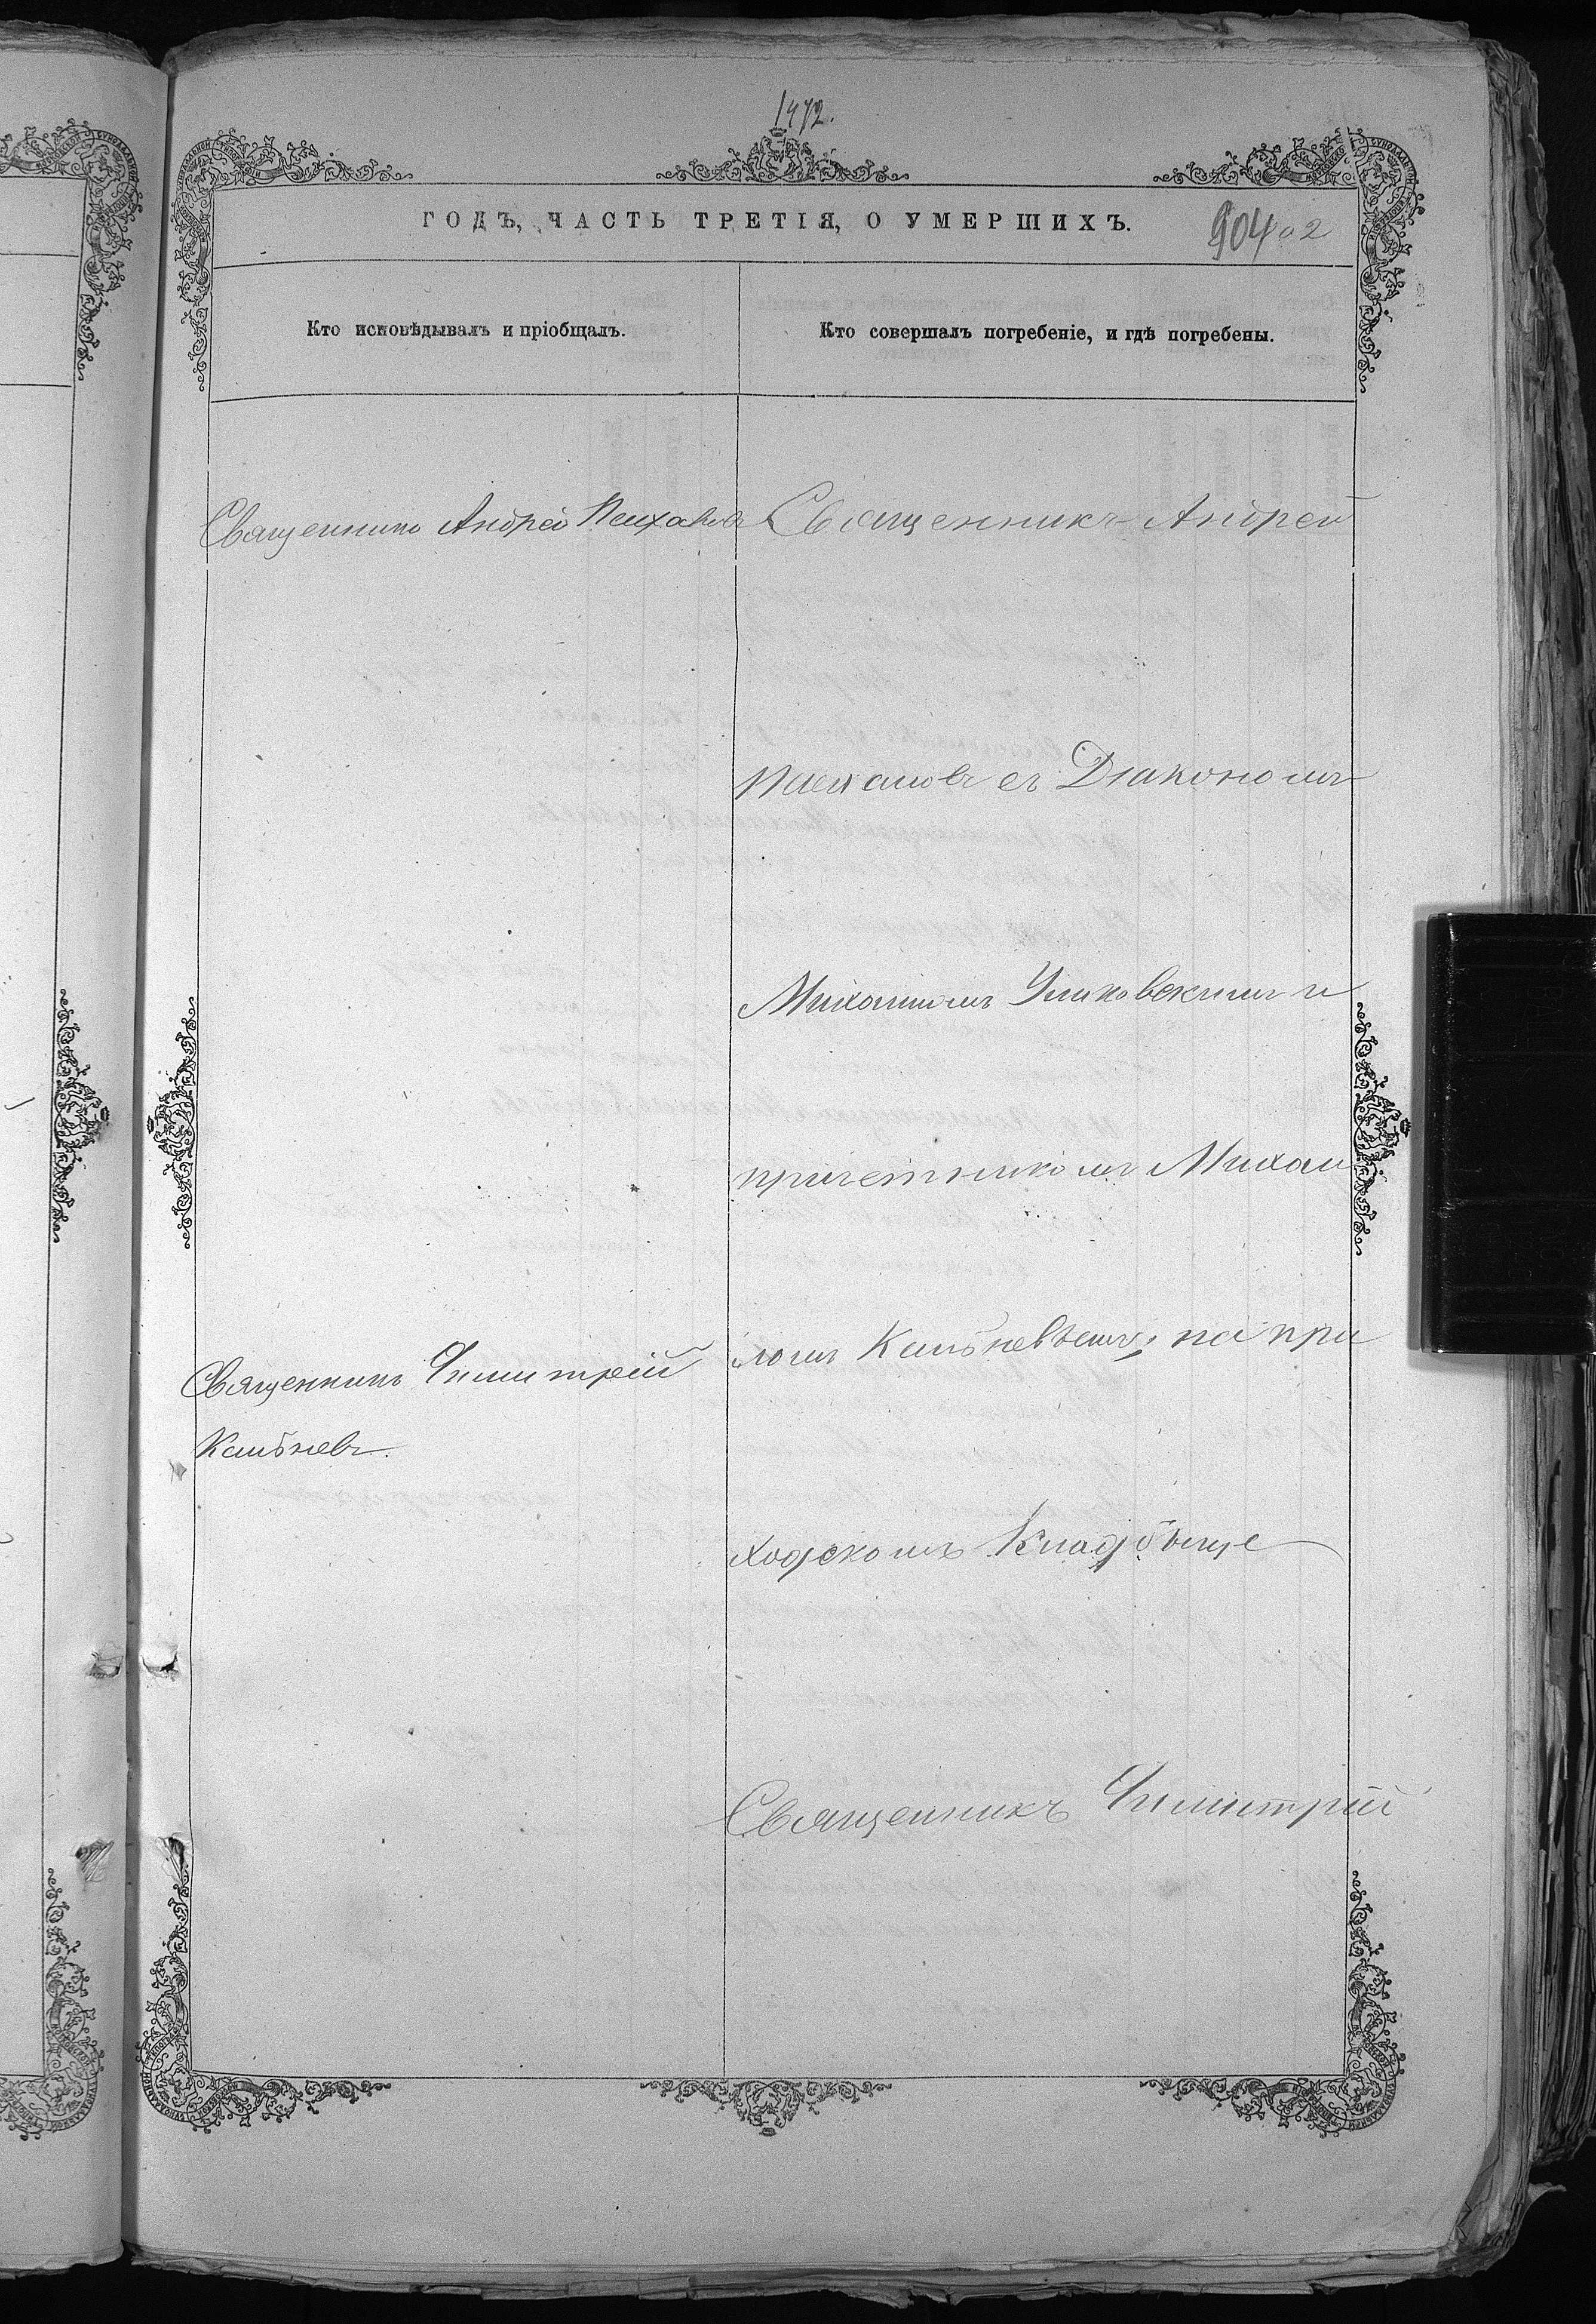 1472.
ГОДЪ, ЧАСТЬ ТРЕТІЯ, О УМЕРШИХЪ.
904
Кто исповѣдывалъ и пріобщалъ.
Кто совершалъ погребеніе, и гдѣ погребены.
Священникъ Андрей
Священникъ Андрей
съ Діакономъ
Михаиломъ и
причетникомъ Михаи
ломъ на при
ходскомъ Кладбище
Священникъ Димитрій
Священникъ Димитрій